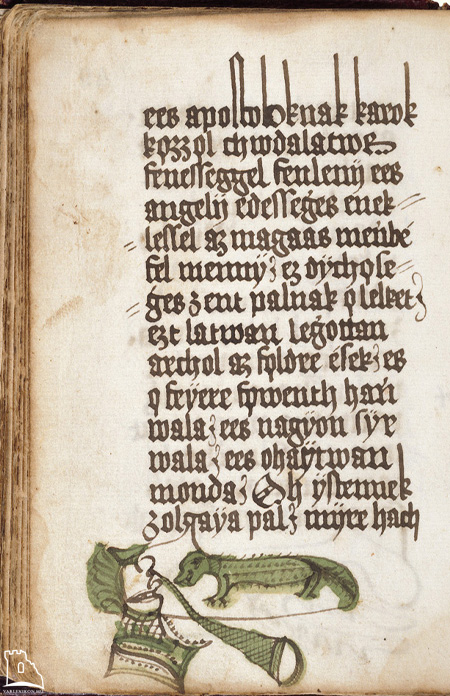 ees apostoloknak karok
kozzol chwdalatws
fenesseggel fenlenij ees
angelij edesseges enek
lessel az magaas menbe
fel menny; ez dychose
ges zent palnak o leleket;
ezt latwan legottan
archol az foldre esek; es
o feyere fowenth han
wala; ees nagyon syr
wala; ees ohaytwan
monda; Oh ystennek
zolgaya pal; mijre hach
VARLEXIKON.HU